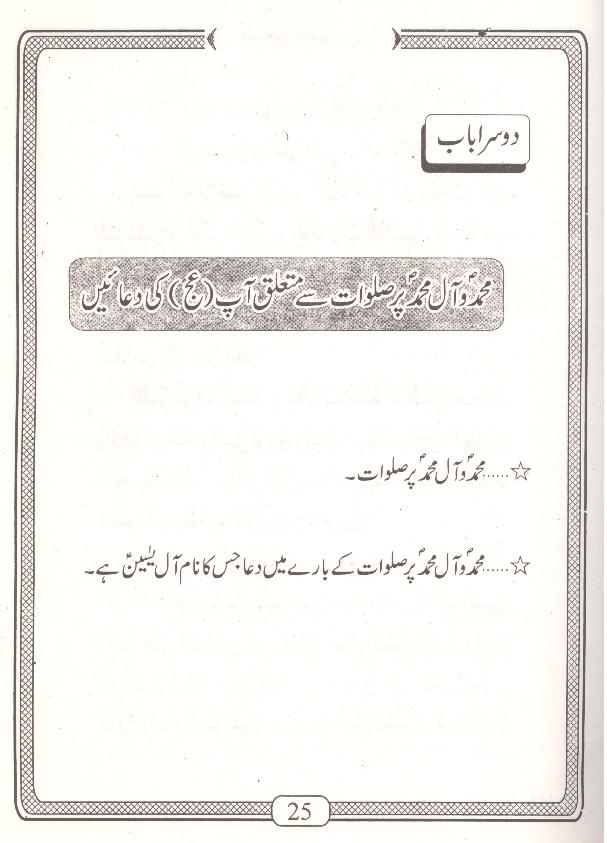 دوسرا باب
محمدؐ و آل محمدؐ پر صلوات سے متعلق آپ (عج) کی دعائیں
☆.....محمدؐ و آل محمدؐ پر صلوات۔
☆.....محمدؐ و آل محمدؐ پر صلوات کے بارے میں دعا جس کا نام آل یٰسینؑ ہے۔
25